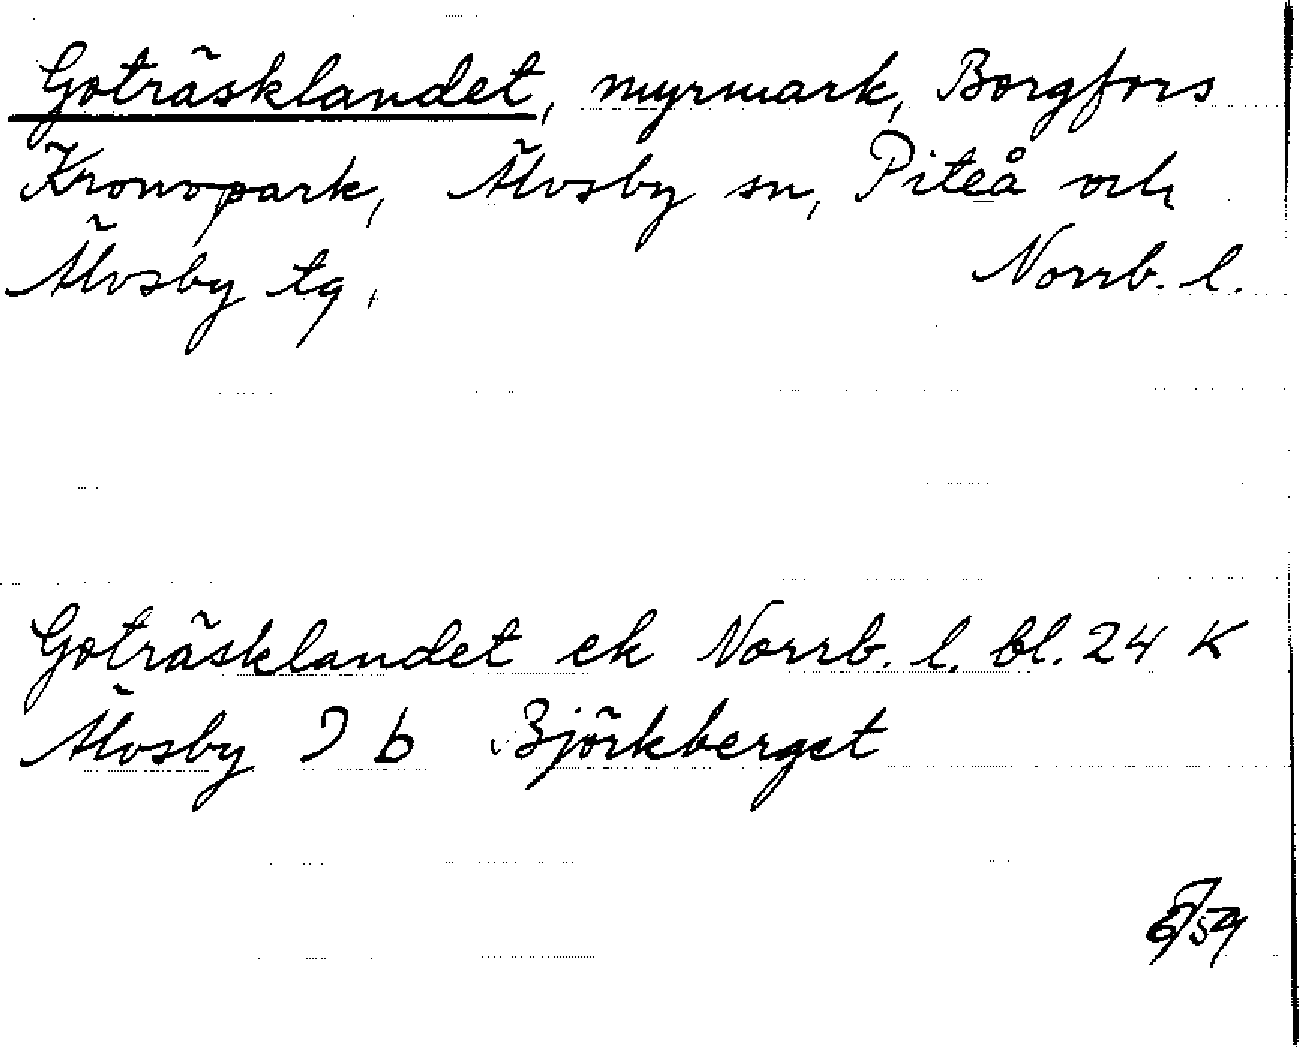 Goträsklandet, myrmark, Borgfors
Kronopark, Älvsby sn, Piteå och
Älvsby tg, Norrb. l.
Goträsklandet ek Norrb. l. bl. 24 K
Älvsby J b Björkberget